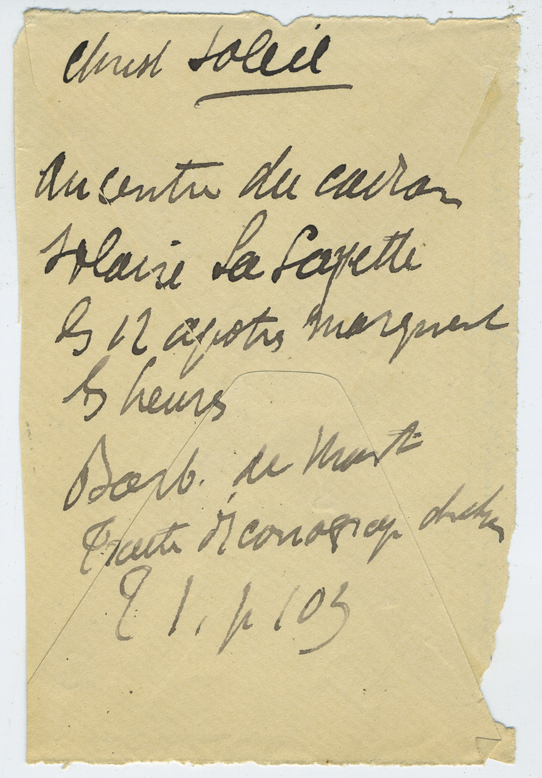 Christ Soleil
Au centre du cadran
Solaire La Fayette
les 12 apotres marquent
les heures
Barb. de Mont
Traité d'iconograp chret
T 1. p 103